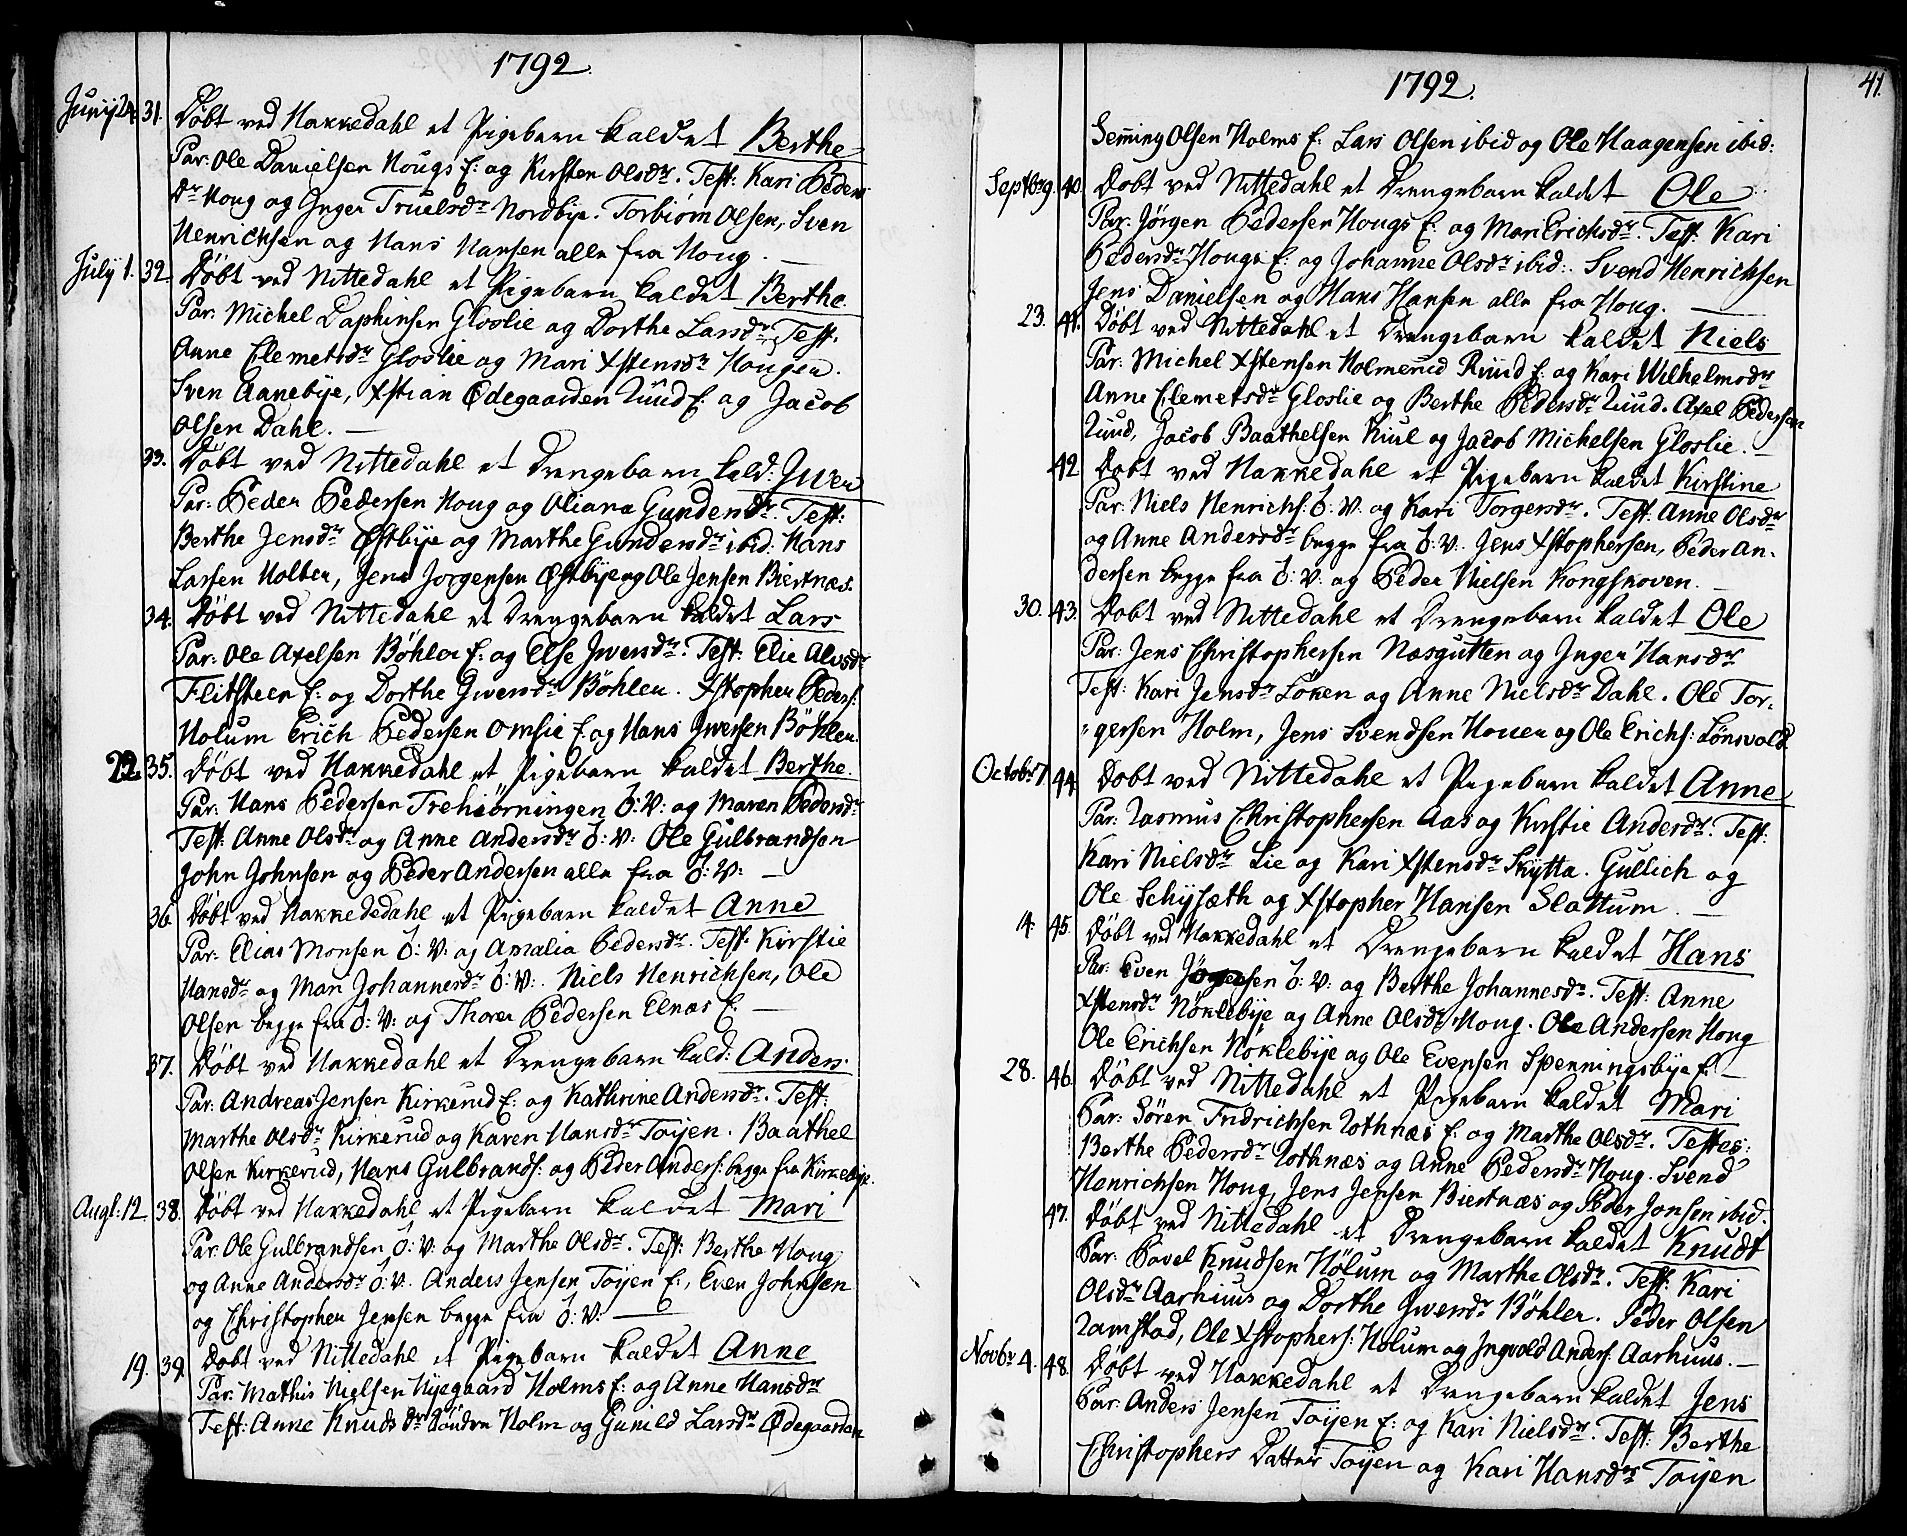 1792.
Junij 24. 31. Döbt ved Hakkedahl et Pigebarn kaldet Berthe
Par: Ole Danielsen Hougs E: og Kirsten Olsdr. Test: Kari Peders
Dr Houg og Inger Truelsdr Nordbye. Torbiörn Olsen, Sven
Henrichsen og Hans Hansen alle fra Houg. —
July 1. 32. Döbt ved Nittedahl et Pigebarn kaldet Berthe.
Par: Michel Daphinsen Gloslie og Dorthe Larsdr. Test.
Anne Clemetsdr Gloslie og Mari Xstensdr Hougen.
Sven Aanebye, Xstian Ødegaarden Ruud E: og Jacob
Olsen Dahl. —
33. Döbt ved Nittedahl et Drengebarn kald: Iver
Par: Peder Pedersen Houg og Oliana Gundersdr. Test:
Berthe Jensdr Østbye og Marthe Gundersdr ibid. Hans
Larsen Holter, Jens Jorgensen Østbye og Ole Jensen Biertnæs.
34. Döbt ved Nittedahl et Drengebarn kaldet Lars
Par: Ole Axelsen Böhler E: og Else Iversdr. Test: Elie Alvsdr
Flitsteen E: og Dorthe Iversdr Böhler. Xstopher Peders:
Holum Erich Pedersen Omsie E. og Hans Iversen Böhler.
22. 35. Döbt ved Hakkedahl et Pigebarn kaldet Berthe.
Par: Hans Pedersen Trehiörningen J: V: og Maren Pedersdr
Test: Anne Olsdr og Anne Andersdr J: V: Ole Gulbrandsen
John Johnsen og Peder Andersen alle fra J: V: —
36. Döbt ved Hakkededahl et Pigebarn kaldet Anne
Par: Elias Monsen J: V: og Amalia Pedersdr. Test: Kirstie
Hansdr og Mari Johannesdr J: V:. Niels Henrichsen, Ole
Olsen begge fra J: V: og Thorer Pedersen Elnæs E. —
37. Döbt ved Hakkedahl et Drengebarn kald: Anders
Par: Andreas Jensen Kirkerud E: og Kathrine Andersdr. Test:
Marthe Olsdr Kirkerud og Karen Hansdr Töyen. Baathel
Olsen Kirkerud, Hans Gulbrands: og Peder Anders: begge fra Kirkebye.
Augl: 12. 38. Döbt ved Hakkedahl et Pigebarn kaldet Mari
Par: Ole Gulbrandsen J: V: og Marthe Olsdr. Test: Berthe Houg
og Anne Andersdr J: V. Anders Jensen Töyen E:, Even Johnsen
og Christopher Jensen begge fra J: V: —
19. 39. Dobt ved Nittedahl et Pigebarn kaldet Anne
Par: Mathis Nielsen Nyegaard Holms E: og Anne Hansdr
Test: Anne Knuds Dr Holm og Gunild Larsdr Ødegaarden
1792. 41.
Seming Olsen Holms E: Lars Olsen ibid og Ole Haagensen ibid:
Septbr 9. 40. Dobt ved Nittedahl et Drengebarn kaldet Ole
Par: Jörgen Pedersen Hougs E: og Mari Erichsdr. Test: Kari
Pedersdr Houge E: og Johanne Olsdr ibid:. Svend Henrichsen
Jens Danielsen og Hans Hansen alle fra Houg. —
23. 41. Döbt ved Nittedahl et Drengebarn kaldet Niels
Par: Michel Xstensen Holmerud Ruud E: og Kari Wilhelmsdr
Anne Clemetsdr Gloslie og Berthe Pedersdr Ruud. Axel Pedersen
Ruud, Jacob Baathelsen Kiul og Jacob Michelsen Gloslie. —
42 Dobt ved Hakkedahl et Pigebarn kaldet Kirstine
Par: Niels Henrichs: J: V: og Kari Torgersdr. Test: Anne Olsdr
og Anne Andersdr begge fra J: V:. Jens Xstophersen, Peder An-
dersen begge fra J: V: og Peder Nielsen Kongskoven. —
30. 43. Dobt ved Nittedahl et Drengebarn kaldet Ole
Par: Jens Christophersen Næsgutten og Inger Hansdr
Test: Kari Jensdr Löken og Anne Nielsdr Dahl. Ole Tor-
"gersen Holm, Jens Svendsen Houer og Ole Erichs: Lönsvold.
Octobr 7. 44 Dobt ved Nittedahl et Pigebarn kaldet Anne
Par: Rasmus Christophersen Aas og Kirstie Andersdr. Test:
Kari Nielsdr Lie og Kari Xstensdr Skytta. Gullich og
Ole Schysæth og Xstopher Hansen Slattum. —
14. 45. Döbt ved Hakkedahl et Drengebarn kaldet Hans
Par: Even J: V: og Berthe Johannesdr. Test: Anne
Xstensdr Nöklebye og Anne Olsdr Houg. Ole Andersen Houg
Ole Erichsen Nöklebye og Ole Evensen Spenningsbye E. —
28. 46. Döbt ved Nittedahl et Pigebarn kaldet Mari
Par: Sören Fridrichsen Rothnæs E: og Marthe Olsdr. Testes:
Berthe Pedersdr Rothnæs og Anne Pedersdr Houg. Svend
Henrichsen Houg, Jens Jensen Biertnæs og Peder Jonsen ibid.
47. Döbt ved Nittedahl et Drengebarn kaldet Knudt
Par: Povel Knudsen Hölum og Marthe Olsdr. Test: Kari
Olsdr Aarhuus og Dorthe Iversdr Böhler. Peder Olsen
Ramstad, Ole Xstophers: Holum og Ingvold Anders: Aarhuus. —
Novbr 4. 48. Döbt ved Hakkedahl et Drengebarn kaldet Jens
Par: Anders Jensen Töyen E: og Kari Nielsdr. Test: Berthe
Christophers Datter Töyen og Kari Hansdr Töyen